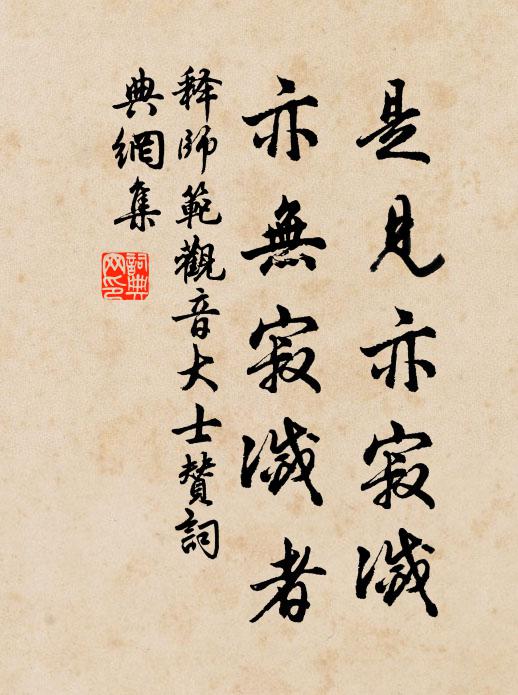 是見亦寂滅
亦無寂滅者
释師範觀音大士贊詞
典網集
詞典
网印